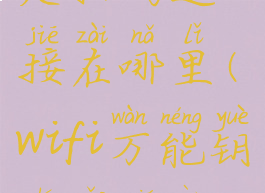 jiē zài nǎ lǐ
接在哪里(
wàn néng yuè
wifi万能钥